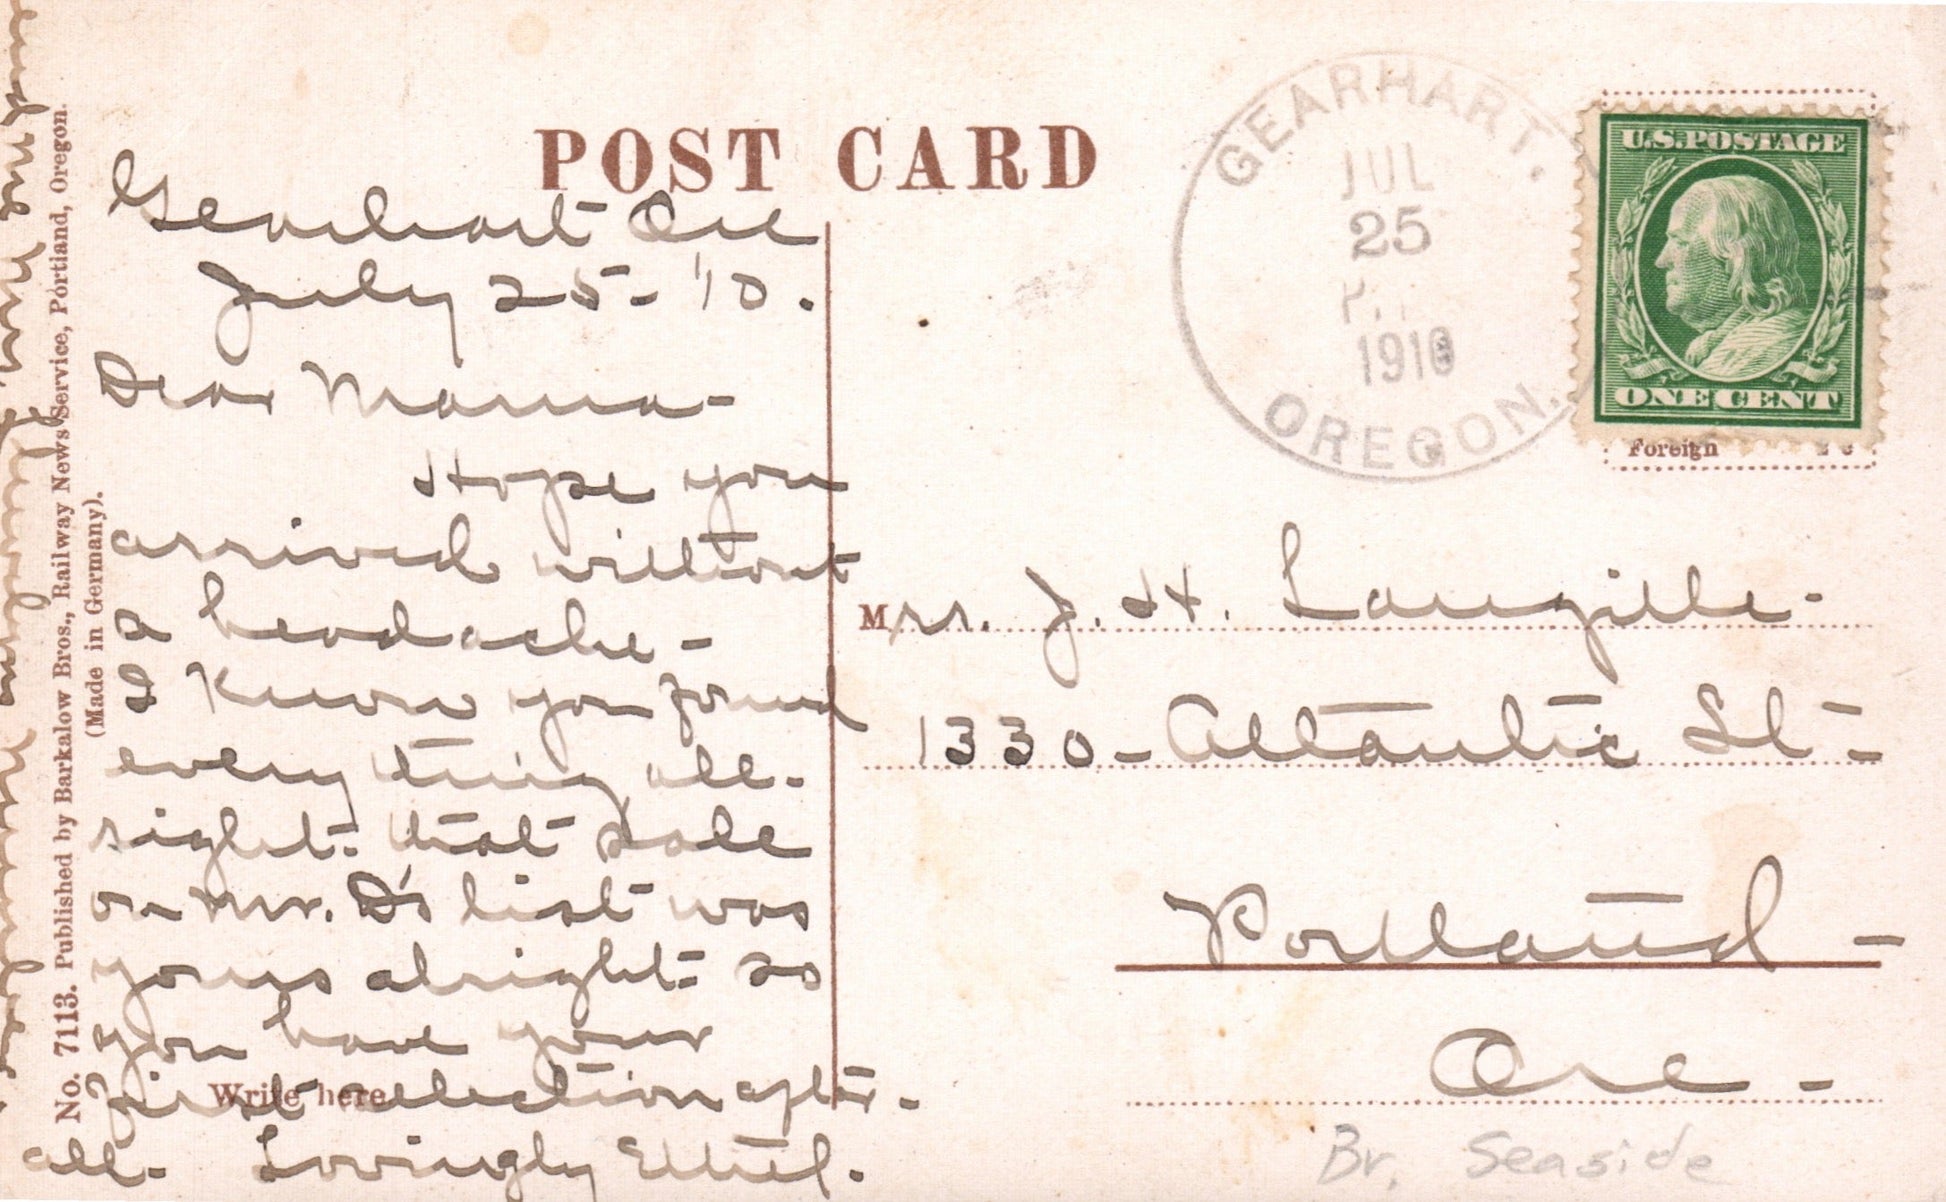 POST CARD
Gearhart Ore
July 25- '10.
Dear Mama-
Hope you
arrived without
a headache-
I know you found
every thing all-
right- that sale
on Mr. D's list was
yours alright- so
you have your
first selection after-
all- Lovingly Ethel.
Write here
No. 7113. Published by Barkalow Bros., Railway News Service, Portland, Oregon.
(Made in Germany).
GEARHART.
JUL
25
1910
OREGON.
U.S. POSTAGE
ONE CENT
Foreign
Mrs. J. H. Langille-
1330- Atlantic St-
Portland-
Ore-
Br. Seaside